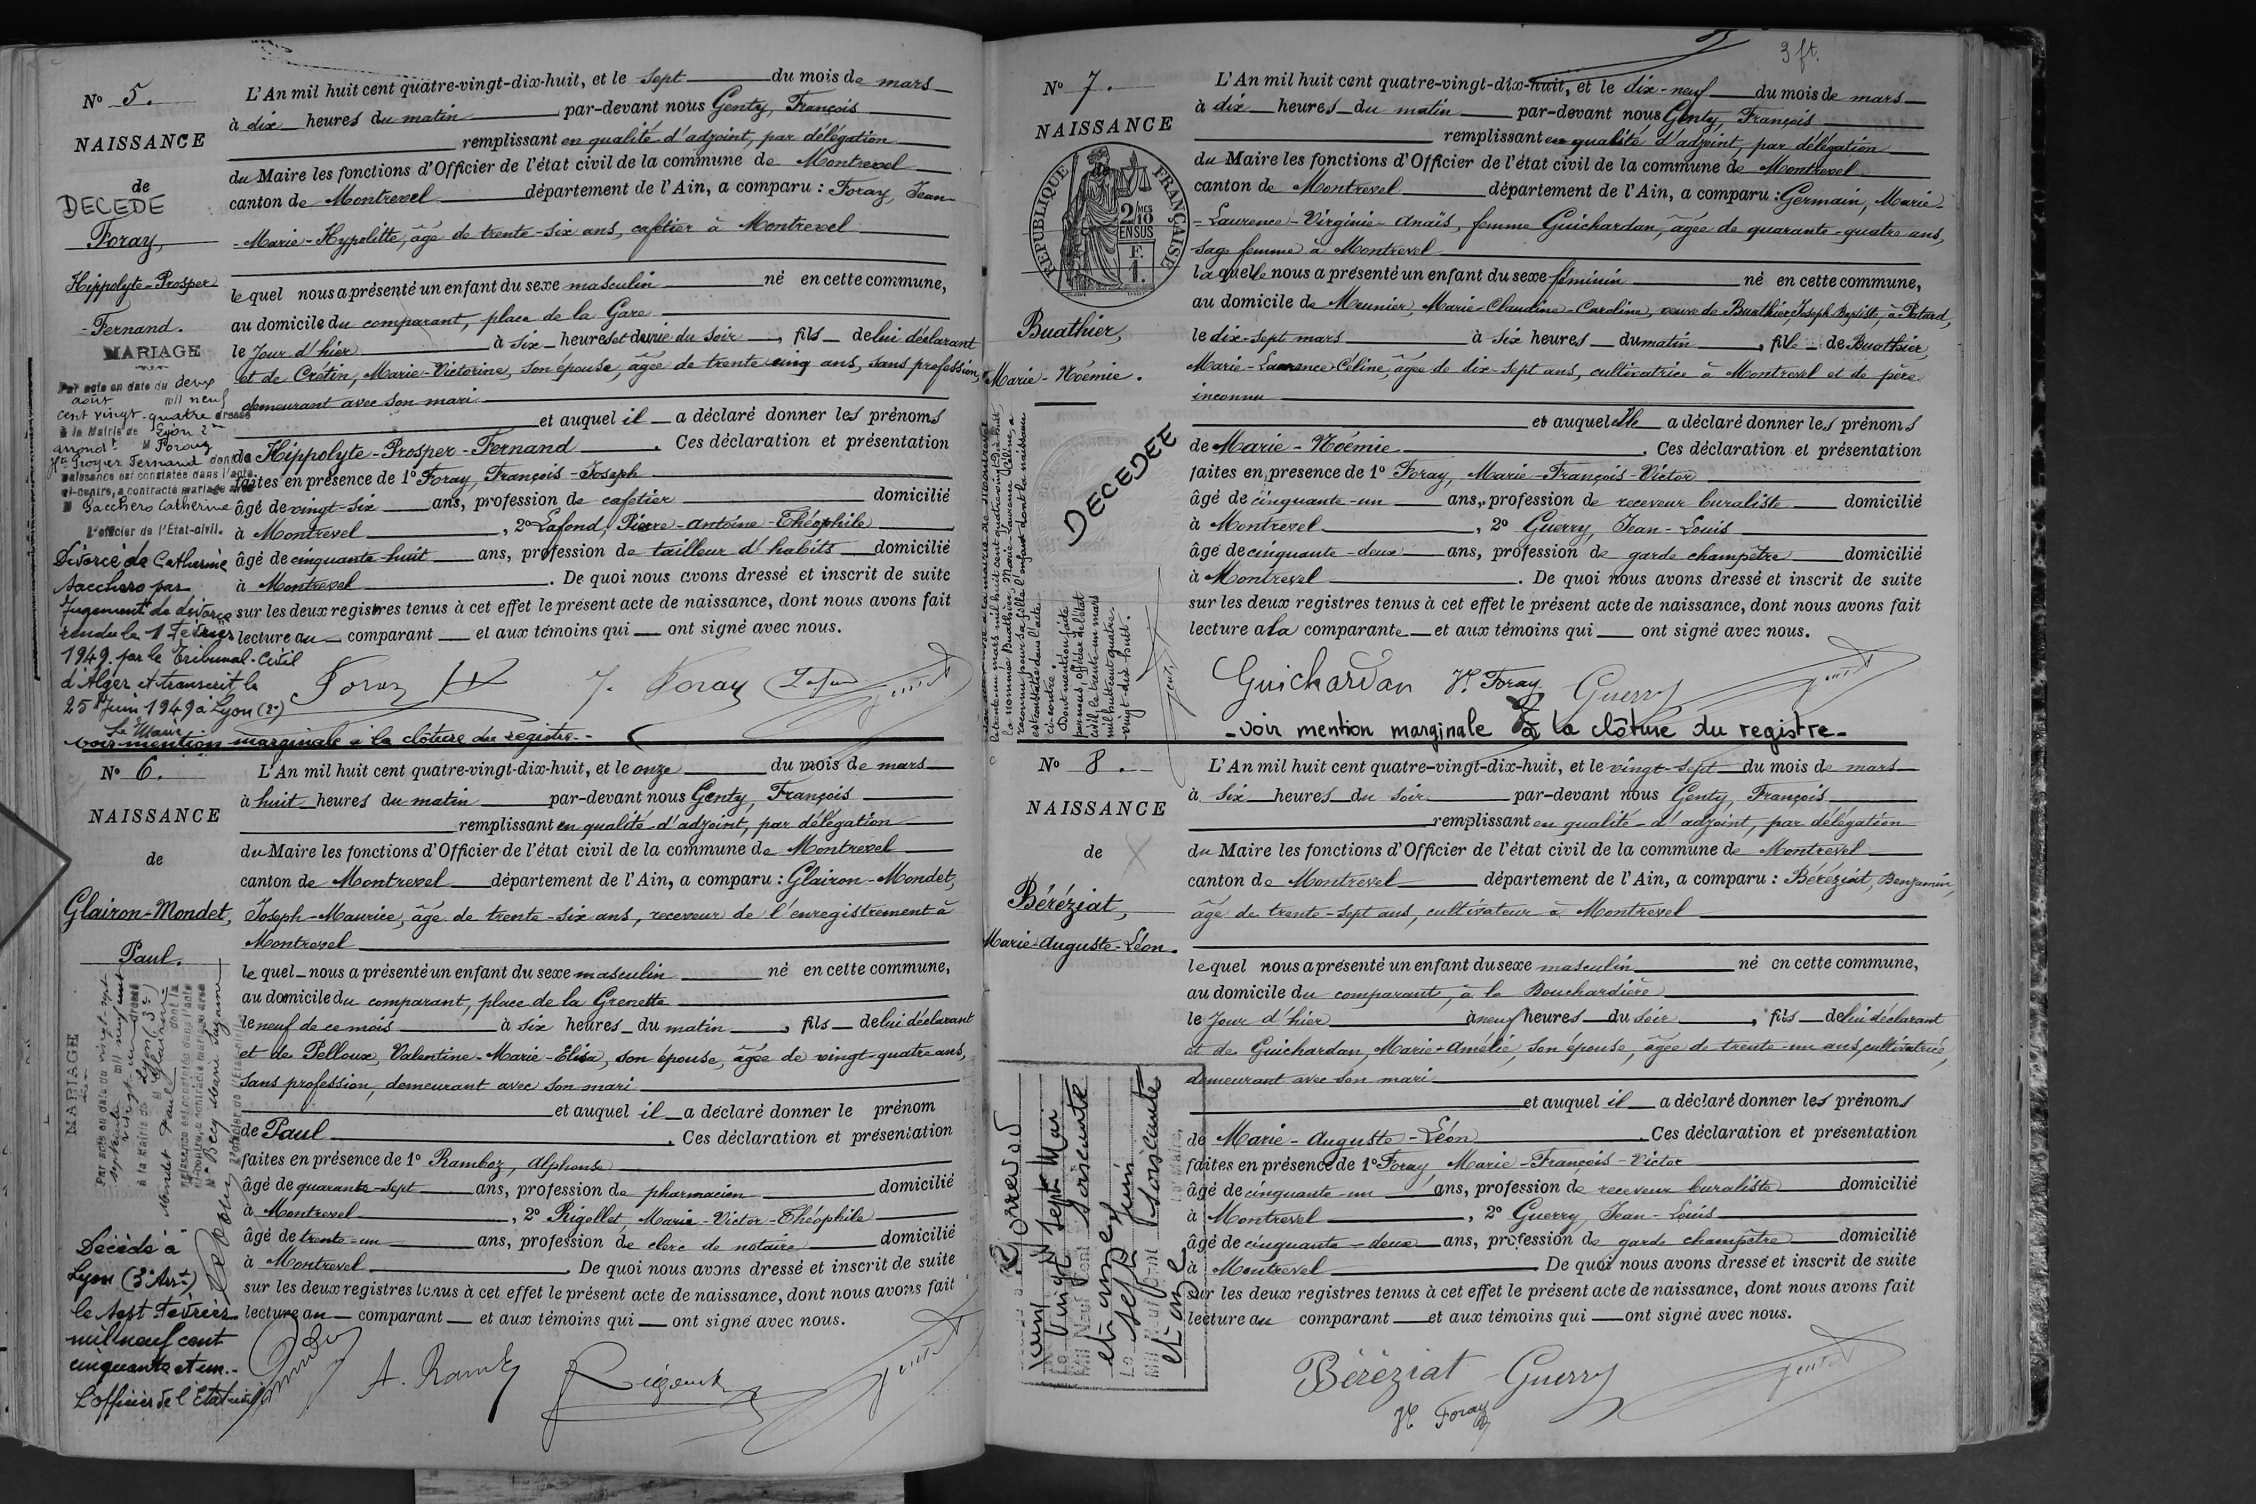 3 ft.
N° 5.
NAISSANCE
de
DECEDE
Foray,
Hippolyte-Prosper
-Fernand.
MARIAGE
Par acte en date du deux
août mil neuf
cent vingt-quatre dressé
à la Mairie de Lyon 2me
arrondt M Foray
Hte Prosper Fernand dont la
naissance est constatée dans l'acte
ci-contre, a contracté mariage avec
M Sacchero Catherine
L'officier de l'Etat-civil.
Divorcé de Catherine
Sacchero par
Jugement de divorce
rendu le 1 Février
1949 par le Tribunal-Civil
d'Alger et transcrit le
25 Juin 1949 à Lyon (2e)
Le Maire
L'An mil huit cent quatre-vingt-dix-huit, et le sept du mois de mars
à dix heures du matin par-devant nous Genty, François
remplissant en qualité d'adjoint, par délégation
du Maire les fonctions d'Officier de l'état civil de la commune de Montrevel
canton de Montrevel département de l'Ain, a comparu : Foray, Jean
-Marie-Hypolitte, âgé de trente-six ans, cafetier à Montrevel
lequel nous a présenté un enfant du sexe masculin né en cette commune,
au domicile du comparant, place de la Gare
le jour d'hier à six heures et demie du soir, fils de lui déclarant
et de Crétin, Marie-Victorine, son épouse, âgée de trente cinq ans, sans profession,
demeurant avec son mari
et auquel il a déclaré donner les prénoms
de Hippolyte-Prosper-Fernand. Ces déclaration et présentation
faites en présence de 1° Foray, François-Joseph
âgé de vingt-six ans, profession de cafetier domicilié
à Montrevel, 2° Lafond, Pierre-Antoine-Théophile
âgé de cinquante-huit ans, profession de tailleur d'habits domicilié
à Montrevel. De quoi nous avons dressé et inscrit de suite
sur les deux registres tenus à cet effet le présent acte de naissance, dont nous avons fait
lecture au comparant et aux témoins qui ont signé avec nous.
Foray J. Foray Lafond Genty
voir mention marginale à la clôture du registre.-
N° 6.
NAISSANCE
de
Glairon-Mondet,
Paul.
MARIAGE
Par acte en date du vingt-sept
septembre mil neuf cent
vingt-un dressé
à la Mairie de Lyon (3e)
M Glairon-
Mondet Paul dont la
naissance est constatée dans l'acte
ci-contre, a contracté mariage avec
Mlle Becq Marie Suzanne
L'officier de l'Etat-civil
Décédé à
Lyon (3e Arrt)
le sept Février
mil neuf cent
cinquante et un.-
L'officier de l'Etat civil
L'An mil huit cent quatre-vingt-dix-huit, et le onze du mois de mars
à huit heures du matin par-devant nous Genty, François
remplissant en qualité d'adjoint, par délégation
du Maire les fonctions d'Officier de l'état civil de la commune de Montrevel
canton de Montrevel département de l'Ain, a comparu : Glairon-Mondet,
Joseph-Maurice, âgé de trente-six ans, receveur de l'enregistrement à
Montrevel
lequel nous a présenté un enfant du sexe masculin né en cette commune,
au domicile du comparant, place de la Grenette
le neuf de ce mois à six heures du matin, fils de lui déclarant
et de Pelloux, Valentine-Marie-Elisa, son épouse, âgée de vingt-quatre ans,
sans profession, demeurant avec son mari
et auquel il a déclaré donner le prénom
de Paul. Ces déclaration et présentation
faites en présence de 1° Ramboz, Alphonse
âgé de quarante-sept ans, profession de pharmacien domicilié
à Montrevel, 2° Rigollet, Marie-Victor-Théophile
âgé de trente-un ans, profession de clerc de notaire domicilié
à Montrevel. De quoi nous avons dressé et inscrit de suite
sur les deux registres tenus à cet effet le présent acte de naissance, dont nous avons fait
lecture au comparant et aux témoins qui ont signé avec nous.
A. Ramboz
N° 7.
NAISSANCE
de
RÉPUBLIQUE FRANÇAISE
2/10 MES
EN SUS
F.
1.
Buathier,
Marie-Noémie.
DECEDEE
le trente-un mars mil huit cent quatre-vingt-dix-huit,
la nommée Buathier, Marie-Laurence Céline, a
reconnu pour sa fille l'enfant dont la naissance
est constatée dans l'acte
ci-contre.
Dont mention faite
par nous, officier de l'état
civil, le trente-un mars
mil huit cent quatre-
vingt-dix-huit.
Genty
L'An mil huit cent quatre-vingt-dix-huit, et le dix-neuf du mois de mars
à dix heures du matin par-devant nous Genty, François
remplissant en qualité d'adjoint, par délégation
du Maire les fonctions d'Officier de l'état civil de la commune de Montrevel
canton de Montrevel département de l'Ain, a comparu : Germain, Marie-
-Laurence-Virginie-Anaïs, femme Guichardan, âgée de quarante-quatre ans,
sage femme à Montrevel
laquelle nous a présenté un enfant du sexe féminin né en cette commune,
au domicile de Meunier, Marie-Claudine-Caroline, veuve de Buathier, Joseph Baptiste, à Batard,
le dix-sept mars à six heures du matin, fille de Buathier,
Marie-Laurence Céline, âgée de dix-sept ans, cultivatrice à Montrevel et de père
inconnu
et auquel elle a déclaré donner les prénoms
de Marie-Noémie. Ces déclaration et présentation
faites en présence de 1° Foray, Marie-François-Victor
âgé de cinquante-un ans, profession de receveur buraliste domicilié
à Montrevel, 2° Guerry, Jean-Louis
âgé de cinquante-deux ans, profession de garde champêtre domicilié
à Montrevel. De quoi nous avons dressé et inscrit de suite
sur les deux registres tenus à cet effet le présent acte de naissance, dont nous avons fait
lecture à la comparante et aux témoins qui ont signé avec nous.
Guichardan Vr Foray Guerry Genty
-voir mention marginale à la clôture du registre-
N° 8.
NAISSANCE
de
Béréziat,
Marie-Auguste-Léon.
Le Vingt Sept Mai
Mil Neuf Cent Soixante
et onze
Le sept Juin
Mil Neuf Cent Soixante
et onze
L'An mil huit cent quatre-vingt-dix-huit, et le vingt-sept du mois de mars
à six heures du soir par-devant nous Genty, François
remplissant en qualité d'adjoint, par délégation
du Maire les fonctions d'Officier de l'état civil de la commune de Montrevel
canton de Montrevel département de l'Ain, a comparu : Béréziat, Benjamin,
âgé de trente-sept ans, cultivateur à Montrevel
lequel nous a présenté un enfant du sexe masculin né en cette commune,
au domicile du comparant, à la Bouchardière
le jour d'hier à neuf heures du soir, fils de lui déclarant
et de Guichardan, Marie-Amélie, son épouse, âgée de trente-un ans, cultivatrice,
demeurant avec son mari
et auquel il a déclaré donner les prénoms
de Marie-Auguste-Léon. Ces déclaration et présentation
faites en présence de 1° Foray, Marie-François-Victor
âgé de cinquante-un ans, profession de receveur buraliste domicilié
à Montrevel, 2° Guerry, Jean-Louis
âgé de cinquante-deux ans, profession de garde champêtre domicilié
à Montrevel. De quoi nous avons dressé et inscrit de suite
sur les deux registres tenus à cet effet le présent acte de naissance, dont nous avons fait
lecture au comparant et aux témoins qui ont signé avec nous.
Béréziat Guerry Genty
Vr Foray